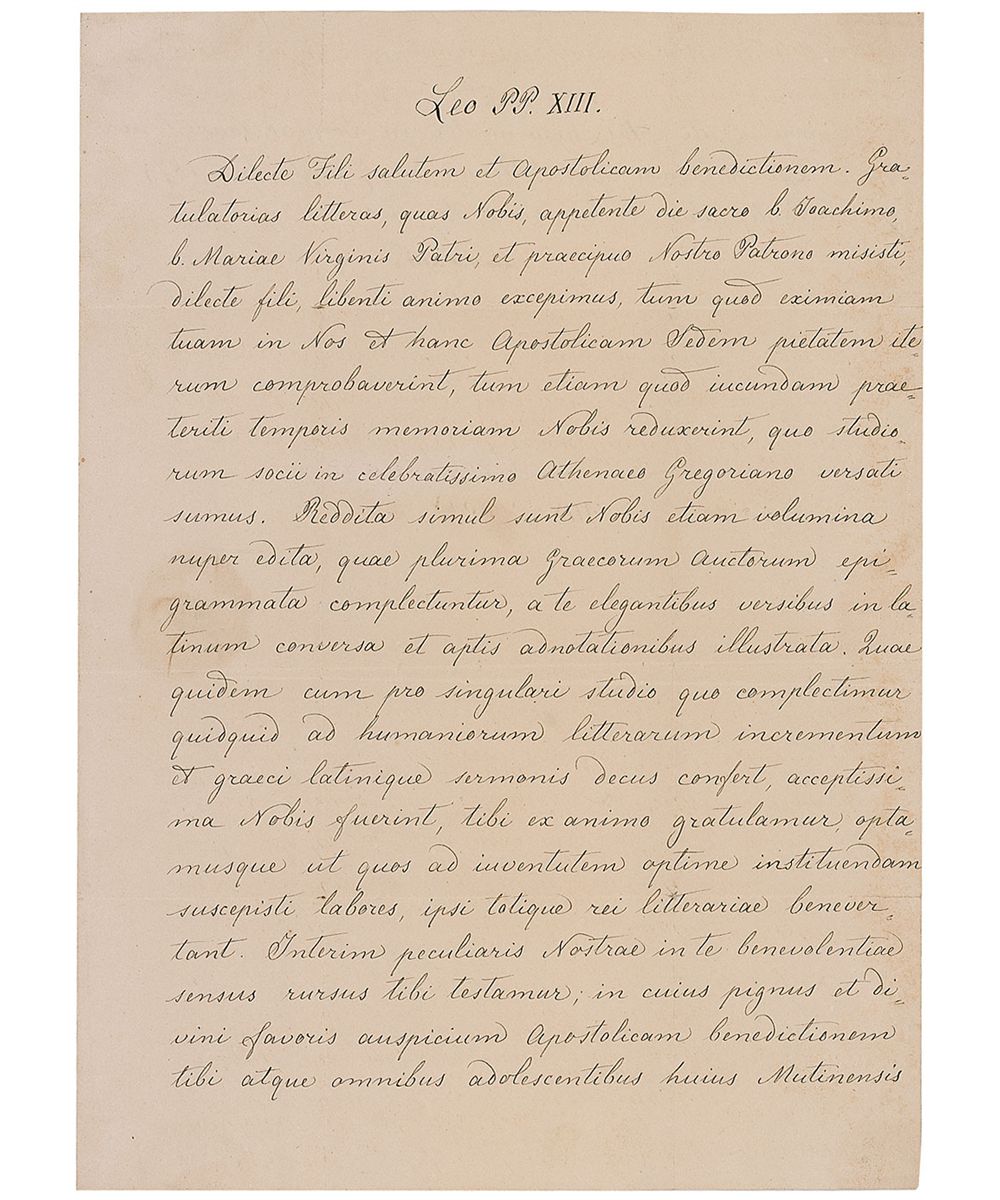 Leo PP. XIII.
Dilecte Fili salutem et Apostolicam benedictionem. Gra=
tulatorias litteras, quas Nobis, appetente die sacro b. Joachimo,
b. Mariae Virginis Patri, et praecipuo Nostro Patrono misisti,
dilecte fili, libenti animo excepimus, tum quod eximiam
tuam in Nos et hanc Apostolicam Sedem pietatem ite=
rum comprobaverint, tum etiam quod iucundam prae=
teriti temporis memoriam Nobis reduxerint, quo studio=
rum socii in celebratissimo Athenaeo Gregoriano versati
sumus. Reddita simul sunt Nobis etiam volumina
nuper edita, quae plurima Graecorum Auctorum epi=
grammata complectuntur, a te elegantibus versibus in la=
tinum conversa et aptis adnotationibus illustrata. Quae
quidem cum pro singulari studio quo complectimur
quidquid ad humaniorum litterarum incrementum
et graeci latinique sermonis decus confert, acceptissi=
ma Nobis fuerint, tibi ex animo gratulamur, opta=
musque ut quos ad iuventutem optime instituendam
suscepisti labores, ipsi totique rei litterariae benever=
tant. Interim peculiaris Nostrae in te benevolentiae
sensus rursus tibi testamur; in cuius pignus et di=
vini favoris auspicium Apostolicam benedictionem
tibi atque omnibus adolescentibus huius Mutinensis